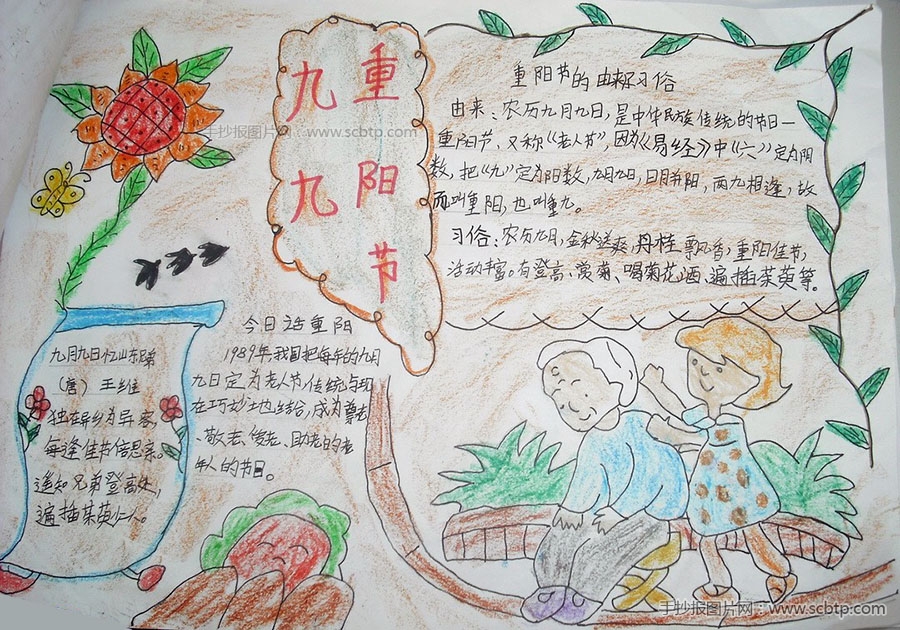 九九
重阳节
重阳节的由来及习俗
由来：农历九月九日，是中华民族传统的节日—
重阳节，又称《老人节》，因为《易经》中《六》定为阴
数，把《九》定为阳数，九月九日，日月并阳，两九相逢，故
而叫重阳，也叫重九。
习俗：农历九日，金秋送爽，丹桂飘香，重阳佳节，
活动丰富。有登高、赏菊、喝菊花酒、遍插茱萸等。
今日话重阳
1989年，我国把每年的九月
九日定为老人节，传统与现
在巧妙地结合，成为尊老
、敬老、爱老、助老的老
年人的节日。
九月九日忆山东兄弟
（唐） 王维
独在异乡为异客，
每逢佳节倍思亲。
遥知兄弟登高处，
遍插茱萸少一人。
手抄报图片网：www.scbtp.com
手抄报图片网：www.scbtp.com